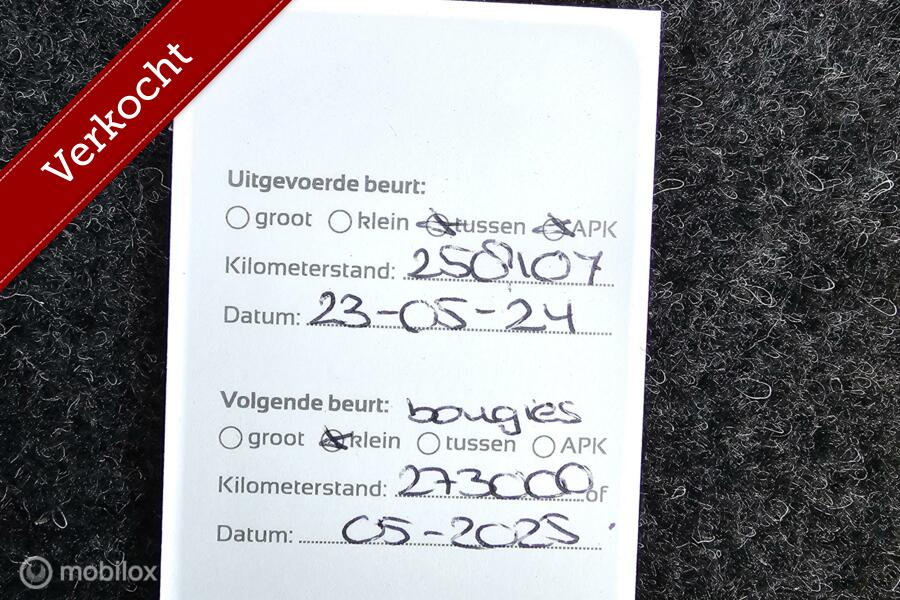 Verkocht
Uitgevoerde beurt:
groot klein tussen APK
Kilometerstand: 258107
Datum: 23-05-24
Volgende beurt: bougies
groot klein tussen APK
Kilometerstand: 273000 of
Datum: 05-2025
mobilox